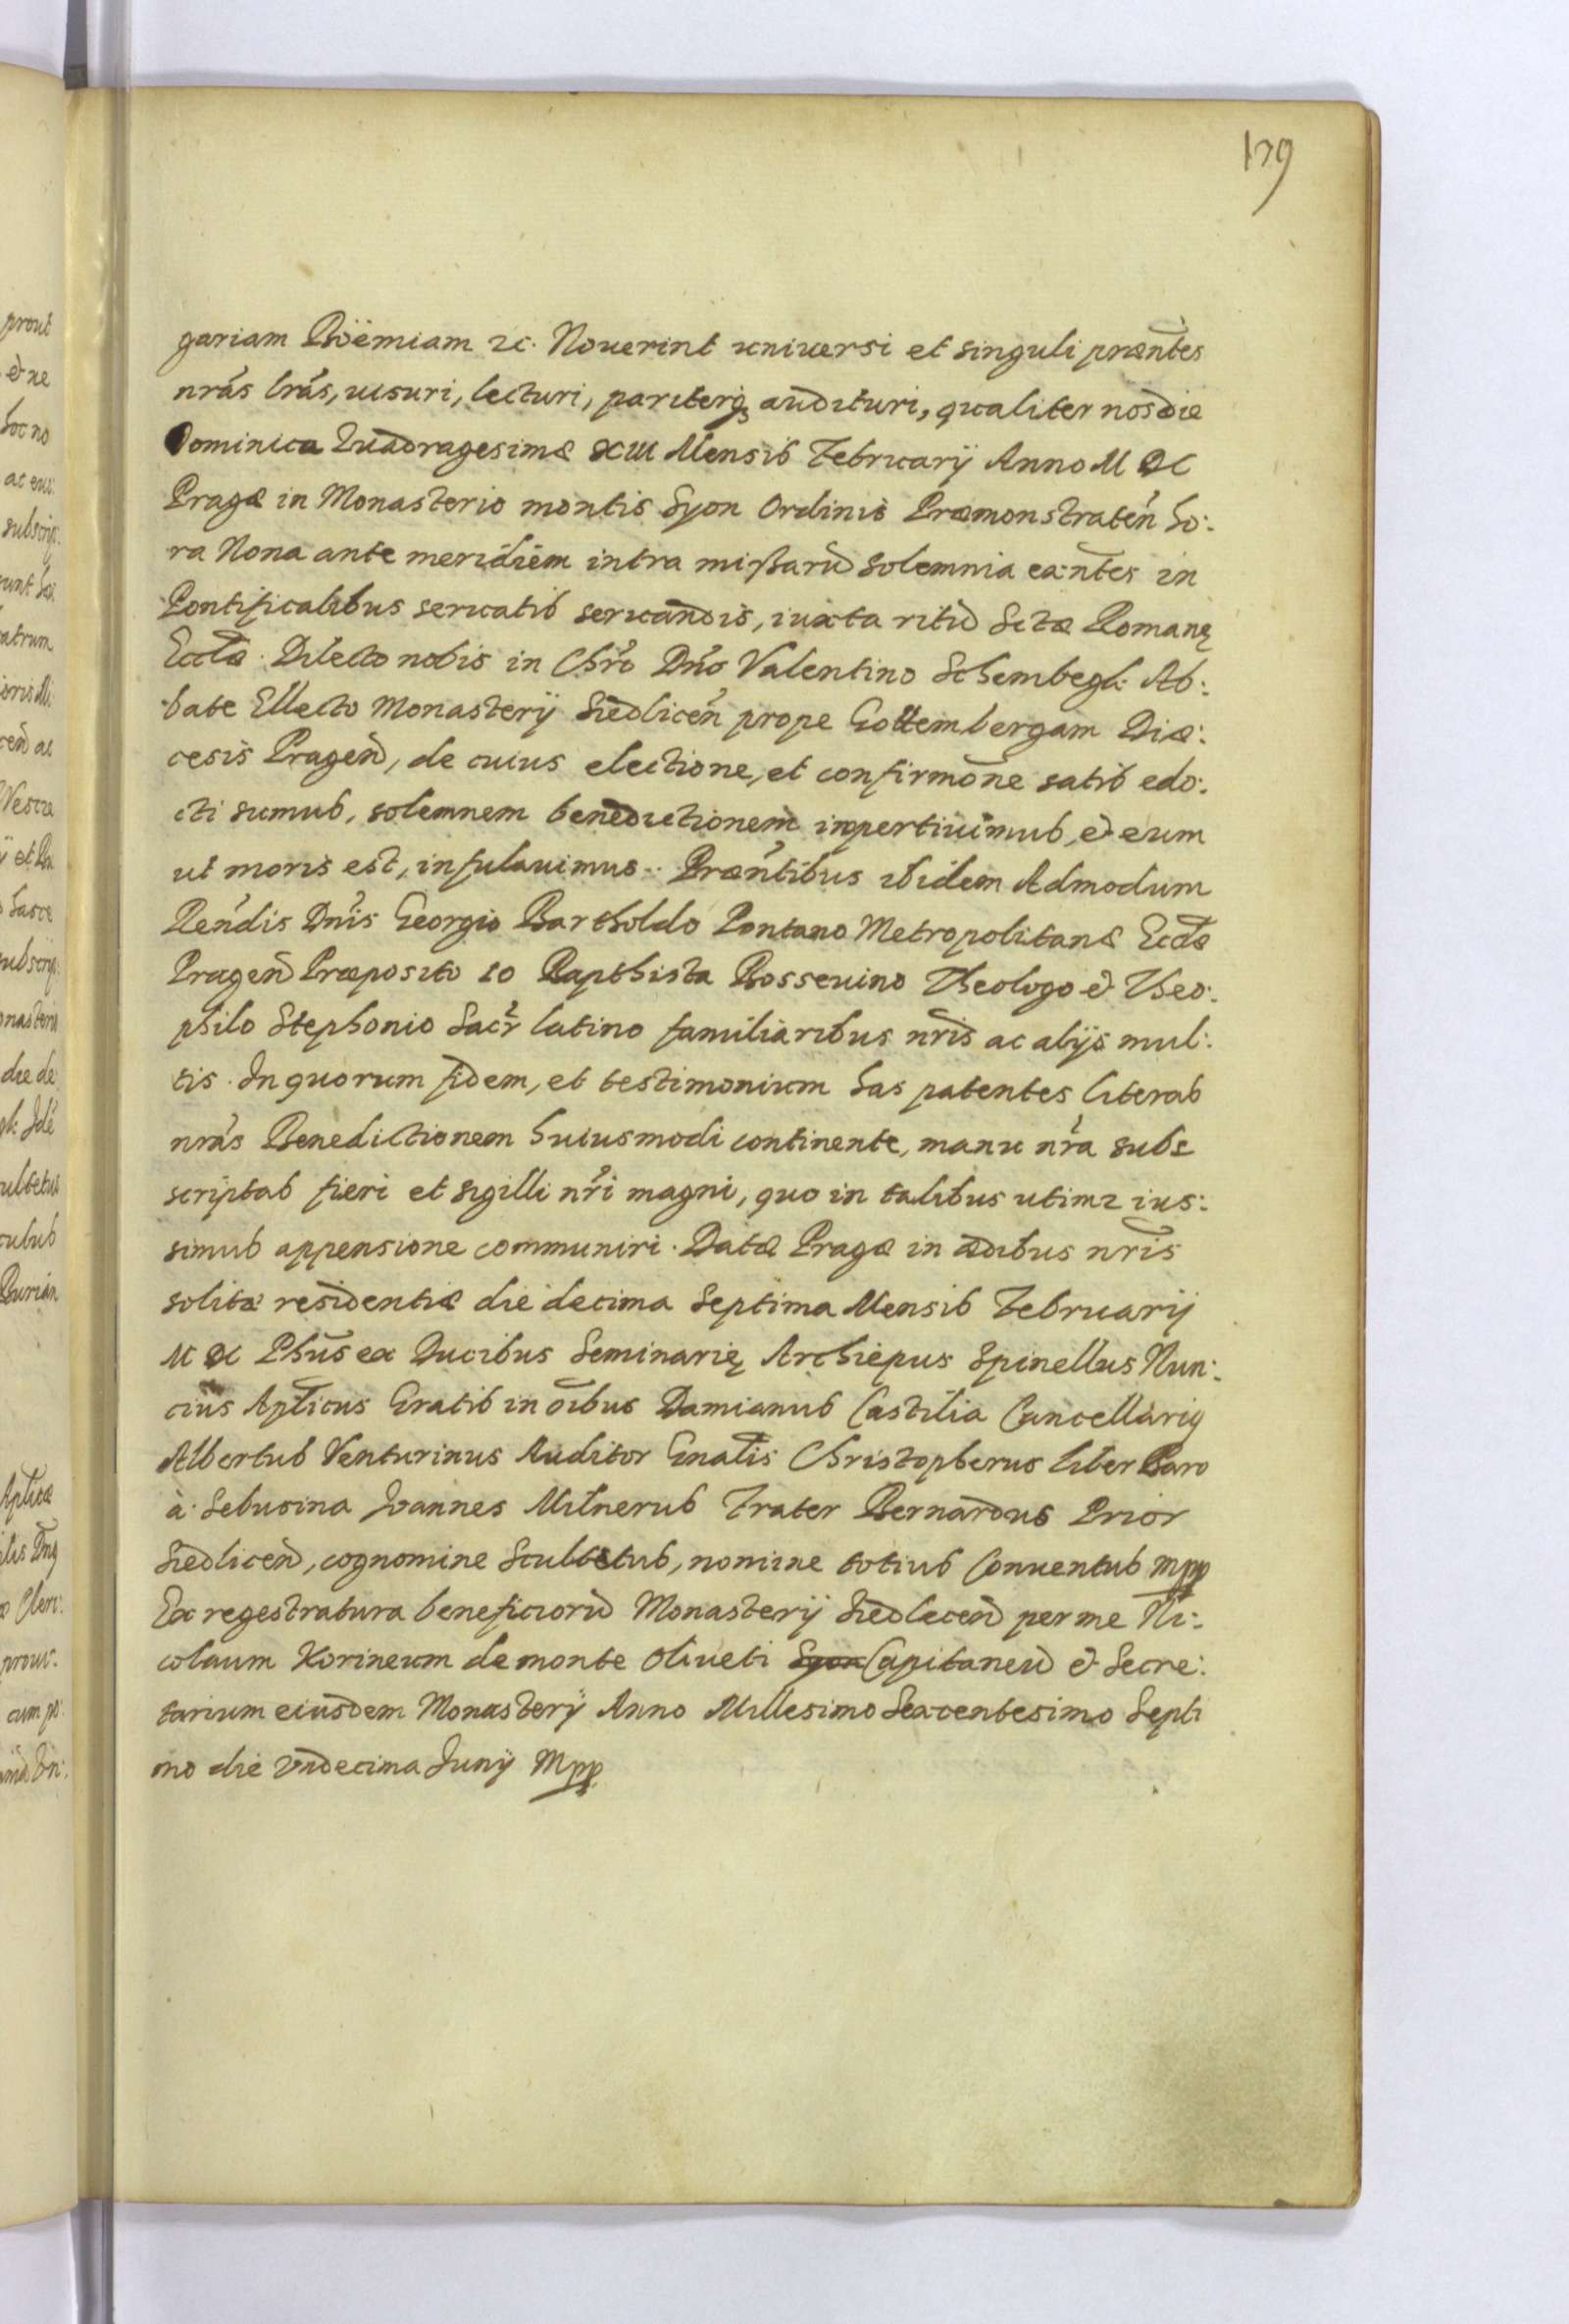 179
gariam Böëmiam ꝛc. Nouerint vniuersi et singuli præntes
nrás lrás, uisuri, lecturi, pariterqꝫ audituri, qualiter nos die
Dominica Quadragesimæ XIII Mensis Februarij Anno M DC
Pragæ in Monasterio montis Syon Ordinis Præmonstratén ho:
ra Nona ante meridiem intra mißarū solemnia exñtes in
Pontificalibus seruatis seruandis, iuxta ritū Sctæ Romanę
Eccłæ. Dilecto nobis in Chrō Dnō Valentino Schembegk Ab:
bate Ellecto Monasterij Siedlicén prope Gottembergam Diæ:
cesis Pragen̄, de cuius electione, et confirmōne satis edo:
cti sumus, solemnem benedictionem impertiuimus, & eum
ut moris est, infulauimus. Præntibus ibidem Admodum
Rēndis Dnīs Georgio Bartholdo Pontano Metropolitanæ Eccłæ
Pragen̄ Præposito Io Bapthista Bosseuino Theologo & Theo:
philo Stephonio Sacr̄ latino familiaribus nr̄is ac alijs mul:
tis. In quorum fidem, et testimonium has patentes literas
nrás Benedictionem huiusmodi continente, manu nr̄a subs
scriptas fieri et sigilli nr̄i magni, quo in talibus utimꝛ ius:
simus appensione communiri. Datæ Pragæ in ædibus nr̄is
solitæ residentiæ die decima Septima Mensis Februarij
M DC Phūs ex Ducibus Seminarię Archiepus Spinellus Nun:
cius Aplicus Gratis in oībus Damianus Castilia Cancellariꝯ
Albertus Venturinus Auditor Gnalis Christopherus liber Baro
à Lebusina Joannes Milnerus Frater Bernardus Prior
Siedlicen̄, cognomine Scultetus, nomine totius Conuentus Mpp
Ex regestratura beneficiorū Monasterij Siedlecen̄ per me Ni:
colaum Korineum de monte Oliueti Syon Capitaneū & Secre:
tarium eiusdem Monasterij Anno Millesimo Sexcentesimo Septi
mo die Vndecima Junij Mpp